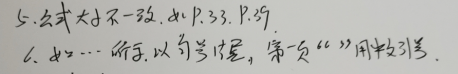 5. 公式大小不一致. 如 P.33. P.39.
6. 如…所示. 以句号结尾, 第一页 “ ” 用中文引号.